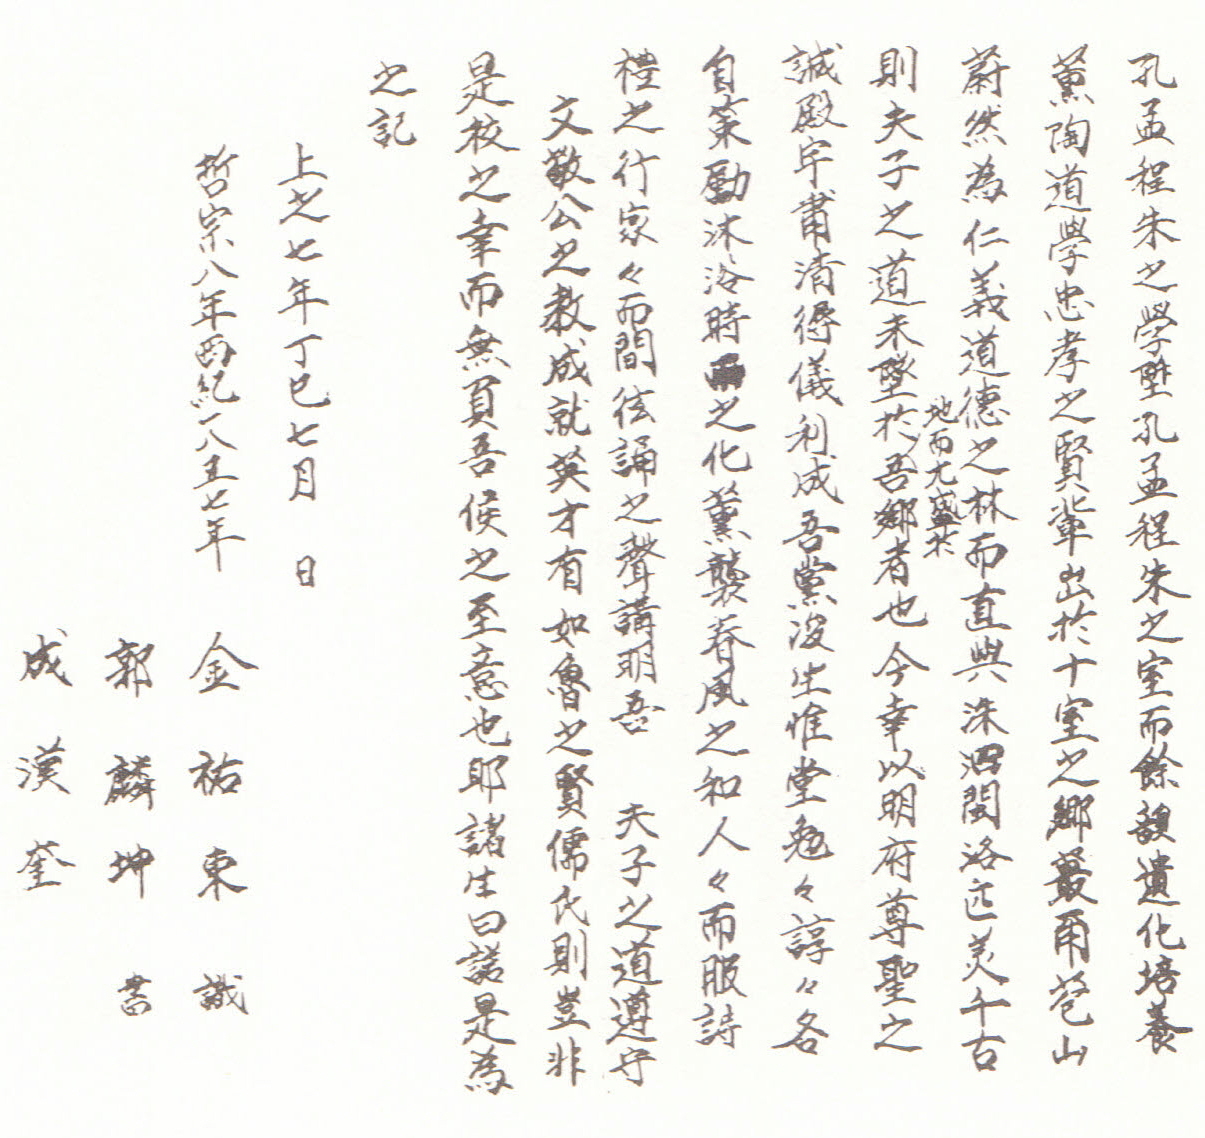 孔孟程朱之學陞孔孟程朱之室而餘韻遺化培養
薰陶道學忠孝之賢輩出於十室之鄉蕞爾苞山
蔚然為仁義道德之林而直與洙泗閩洛匹美千古
則夫子之道未墜於吾鄉者也今幸以明府尊聖之
地而尤盛於
誠殿宇肅清得儀利成吾黨後生惟堂勉々諄々各
自策勵沐浴時雨之化薰襲春風之和人々而服詩
禮之行家々而間絃誦之聲講明吾 夫子之道遵守
文敬公之教成就英才有如魯之賢儒氏則豈非
是校之幸而無負吾候之至意也耶諸生曰諾是為
之記
上之七年丁巳七月 日
哲宗八年西紀一八五七年
金祐東 識
郭麟坤 書
成漢奎